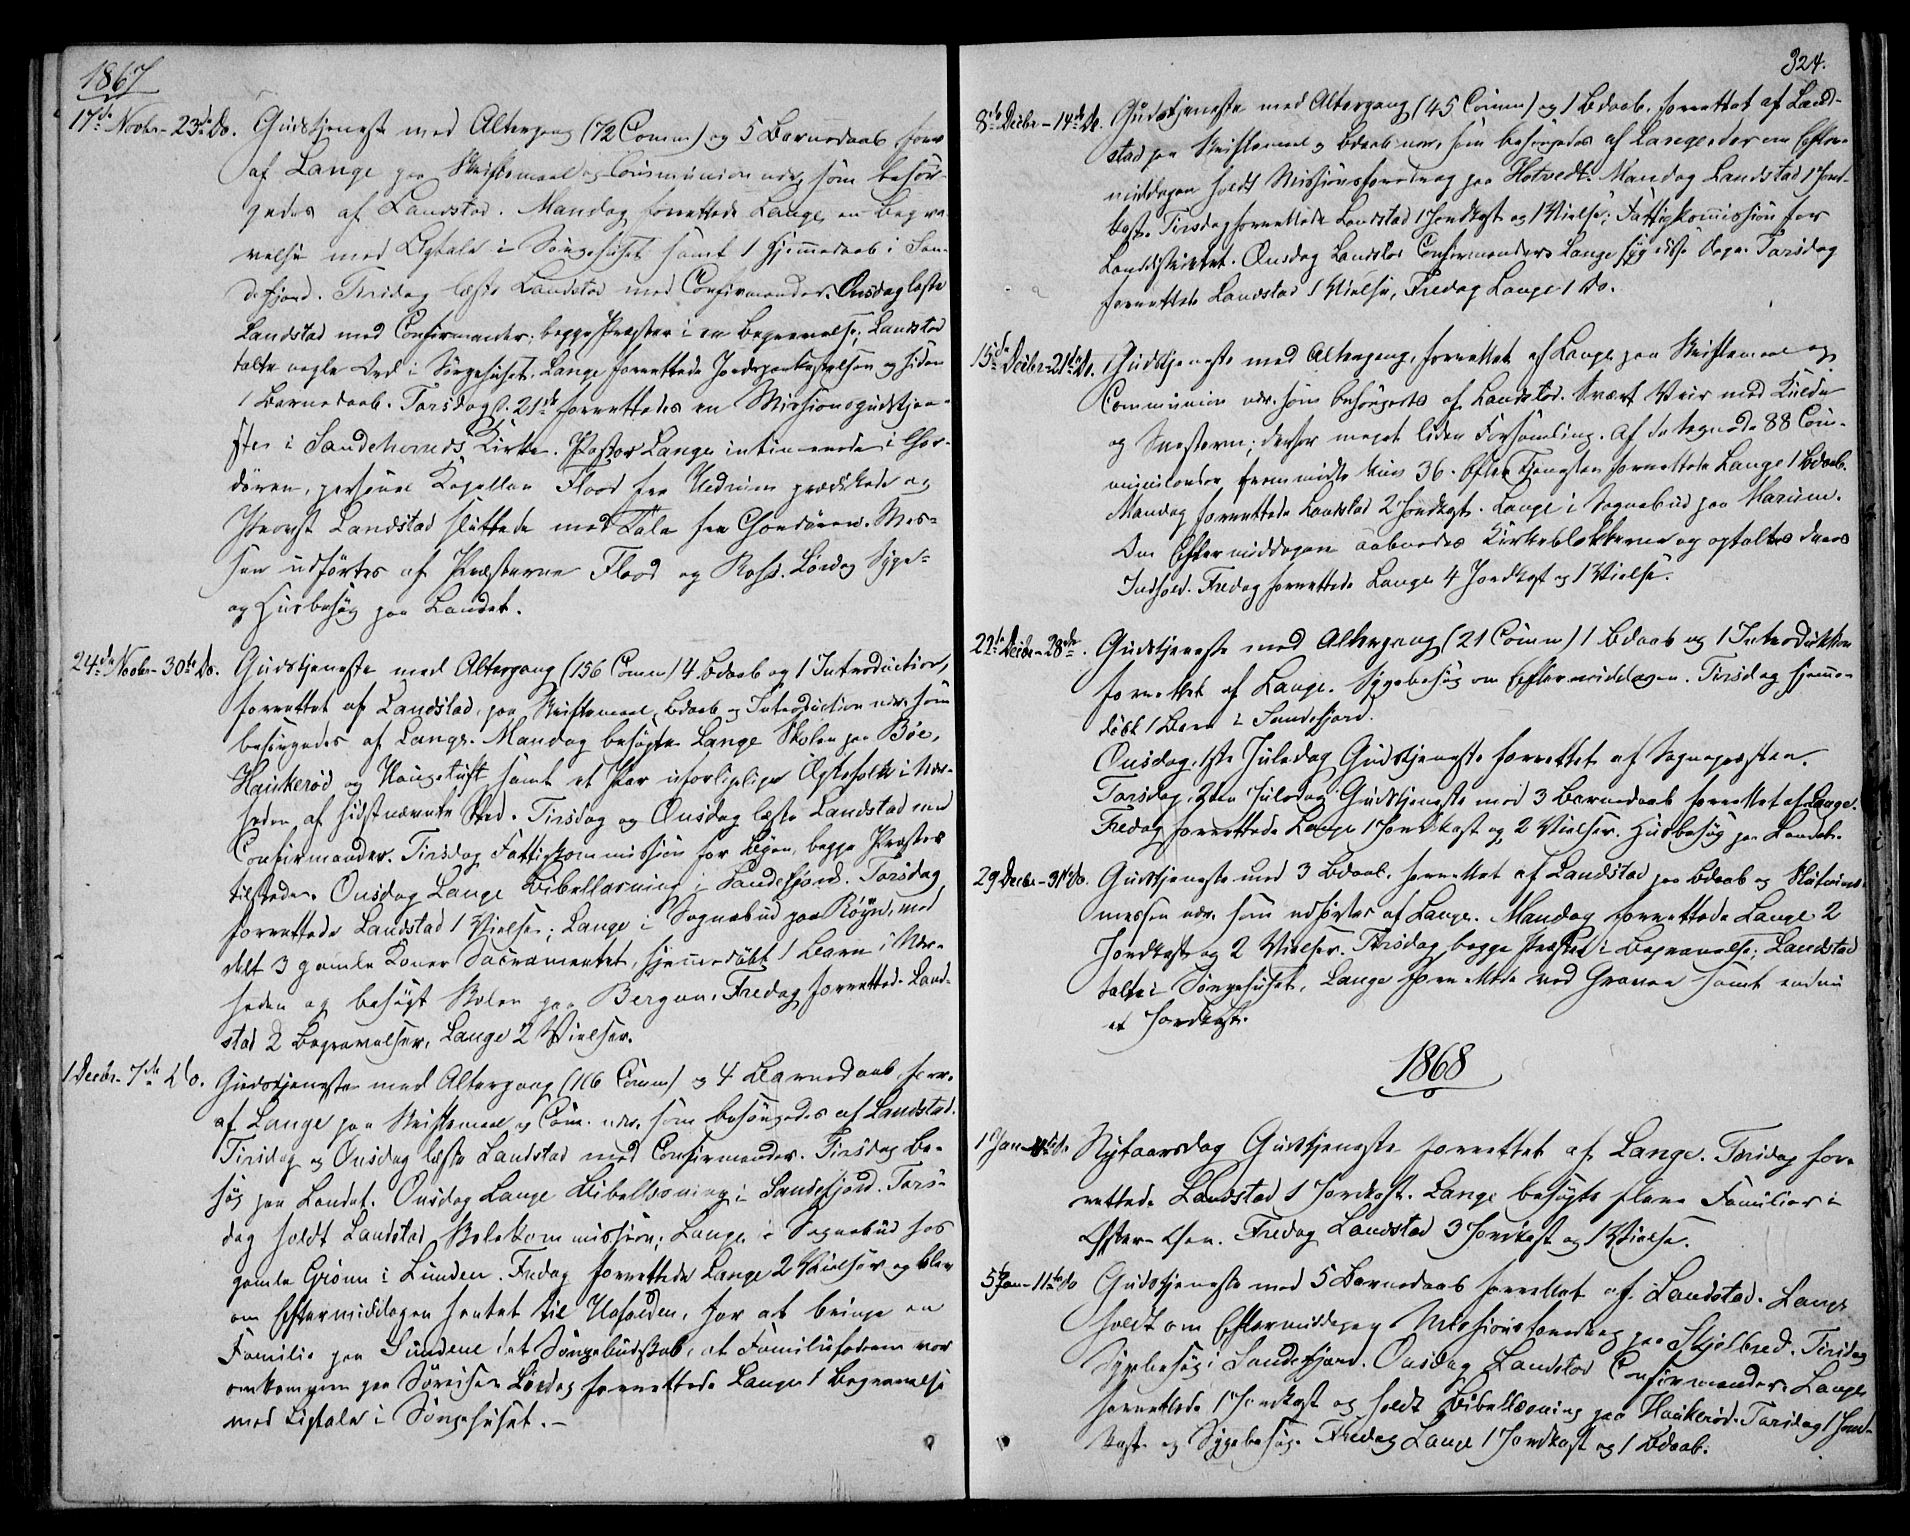 1867
17de Novbr - 23de Do. Gudstjeneste med Altergang (72 Comm) og 5 Barnedaab, forr.
af Lange paa Skriftemaal og Communion nær, som besør-
gedes af Landstad. Mandag forrettede Lange en Begra-
velse med Ligtale i Sørgehuset samt 1 Hjemmedaab i San-
defjord. Tirsdag læste Landstad med Confirmander. Onsdag læste
Landstad med Confirmander, begge Præster i en Begravelse; Landstad
talte nogle Ord i Sørgehuset. Lange forrettede Jordpaakastelsen og siden
1 Barnedaab. Torsdag d. 21de forrettedes en Missionsgudstjene-
ste i Sandeherreds Kirke. Pastor Lange intimerede i Chor-
døren, personel Kapellan Flood fra Hedrum prædikede og
Provst Landstad sluttede med Tale fra Chordøren. Mes-
sen udførtes af Præsterne Flood og Ross. Lørdag Syge-
og Husbesøg paa Landet.
24de Novbr - 30te Do. Gudstjeneste med Altergang (156 Comm) 4 Bdaab og 1 Introduction,
forrettet af Landstad, paa Skriftemaal, Bdaab og Introduction nær, som
besørgedes af Lange. Mandag besøgte Lange Skolen paa Bøe,
Haukerød og Haugetuft samt et Par uforligelige Ægtefolk i Nær-
heden af sidstnævnte Sted. Tirsdag og Onsdag læste Landstad med
Confirmander. Tirsdag Fattigkommission for Byen, begge Præster
tilstede. Onsdag Lange Bibellæsning i Sandefjord. Torsdag
forrettede Landstad 1 Vielse; Lange i Sognebud paa Røyn, med-
delt 3 gamle Koner Sacramentet, hjemmedøbt 1 Barn i Nær-
heden og besøgt Skolen paa Bergan. Fredag forrettede Land-
stad 2 Begravelser, Lange 2 Vielser.
1 Decbr - 7de Do. Gudstjeneste med Altergang (116 Comm) og 4 Barnedaab, forr.
af Lange paa Skriftemaal og Com. nær, som besørgedes af Landstad.
Tirsdag og Onsdag læste Landstad med Confirmander. Tirsdag Be-
søg paa Landet. Onsdag Lange Bibellæsning i Sandefjord. Tors-
dag holdt Landstad Skolekommission; Lange i Sognebud hos
gamle Grønn i Lunden. Fredag forrettede Lange 2 Vielser og blev
om Eftermiddagen hentet til, for at bringe en
Familie paa Sundene det Sørgebudskab, at Familiefaderen var
omkommen paa Søreisen. Lørdag forrettede Lange 1 Begravelse
med Ligtale i Sørgehuset. -
324.
8de Decbr - 14de Do. Gudstjeneste med Altergang (45 Comm) og 1 Bdaab, forrettet af Land-
stad paa Skriftemaal og Bdaab nær, som besørgedes af Lange, der om Efter-
middagen holdt Missionsforedrag paa Hotvedt. Mandag Landstad 1 Jord-
kast. Tirsdag forrettede Landstad 1 Jordkast og 1 Vielse; Fattigkommission for
Landdistriktet. Onsdag Landstad Confirmander. Lange syg disse Dage. Torsdag
forrettede Landstad 1 Vielse, Fredag Lange 1 Do.
15de Decbr - 21de Do. Gudstjeneste med Altergang, forrettet af Lange paa Skriftemaal og
Communion nær, som besørgedes af Landstad. Svært Veir med Kulde
og Snestorm; derfor meget liden Forsamling. Af de tegnede 88 Com-
municanter fremmødte kun 36. Efter Tjenesten forrettede Lange 1 Bdaab.
Mandag forrettede Landstad 2 Jordkast. Lange i Sognebud paa Marum.
Om Eftermiddagen aabnedes Kirkeblokkerne og optaltes deres
Indhold. Fredag forrettede Lange 4 Jordkast og 1 Vielse.
22de Decbr - 28de. Gudstjeneste med Altergang (21 Comm) 1 Bdaab og 1 Introduktion
forrettet af Lange. Sygebesøg om Eftermiddagen. Tirsdag hjemme-
døbt 1 Barn i Sandefjord.
Onsdag, 1ste Juledag Gudstjeneste forrettet af Sognepræsten.
Torsdag, 2den Juledag Gudstjeneste med 3 Barnedaab forrettet af Lange.
Fredag forrettede Lange 1 Jordkast og 2 Vielser. Husbesøg paa Landet.
29 Decbr - 31te Do. Gudstjeneste med 3 Bdaab, forrettet af Landstad paa Bdaab og Slutnings-
messen nær, som udførtes af Lange. Mandag forrettede Lange 2
Jordkast og 2 Vielser. Tirsdag begge Præster i Begravelse; Landstad
talte i Sørgehuset, Lange forrettede ved Graven samt endnu
et Jordkast.
1868
1 Jan - 4de Do Nytaarsdag Gudstjeneste forrettet af Lange. Torsdag for-
rettede Landstad 1 Jordkast. Lange besøgte flere Familier i
Øster-Øen. Fredag Landstad 3 Jordkast og 1 Vielse.
5 Jan - 11te Do Gudstjeneste med 5 Barnedaab forrettet af Landstad. Lange
holdt om Eftermiddagen Missionsforedrag paa Skjelbred. Tirsdag
Sygebesøg i Sandefjord. Onsdag Landstad Confirmander. Lange
forrettede 1 Jordkast og holdt Bibellæsning paa Haukerød. Torsdag 1 Jord-
kast og Sygebesøg. Fredag Lange 1 Jordkast og 1 Bdaab.